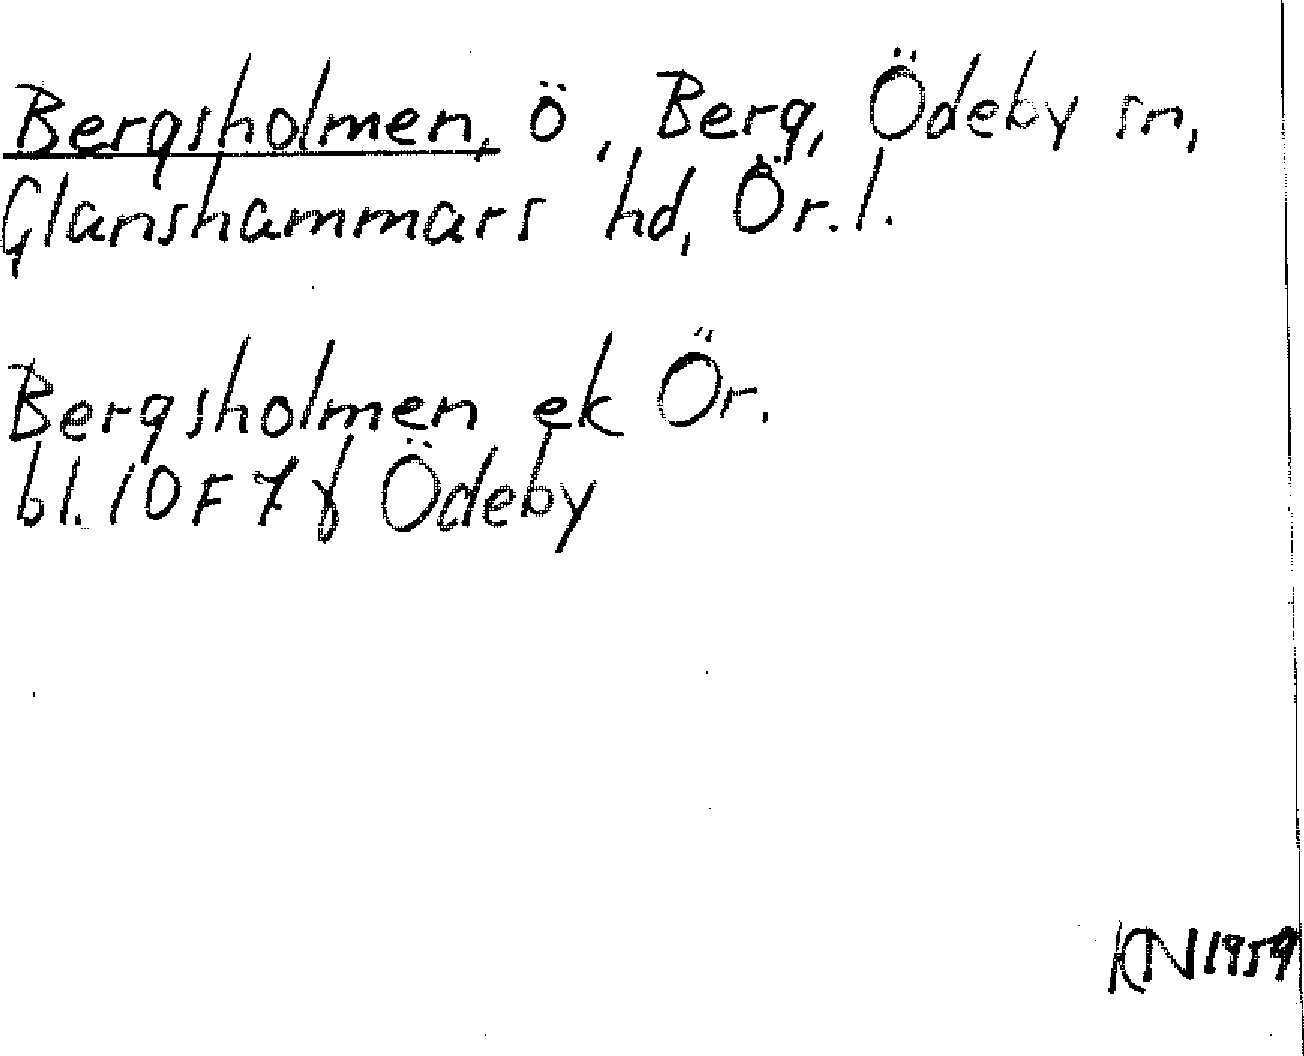 Bergsholmen, ö, Berg, Ödeby sn,
Glanshammars hd, Ör. l.
Bergsholmen ek Ör.
bl. 10F7f Ödeby
KN 1959